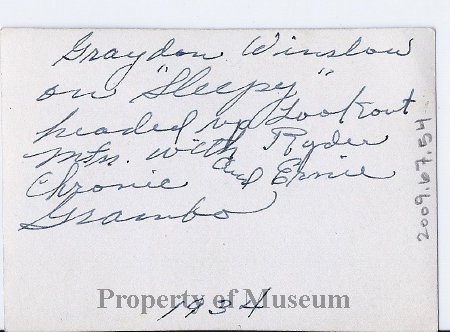 Graydon Winslow
on "Sleepy"
headed up Lookout
Mtn. with Ryder
Chronic and Ernie
Grambo
1934
Property of Museum
2009.67.54